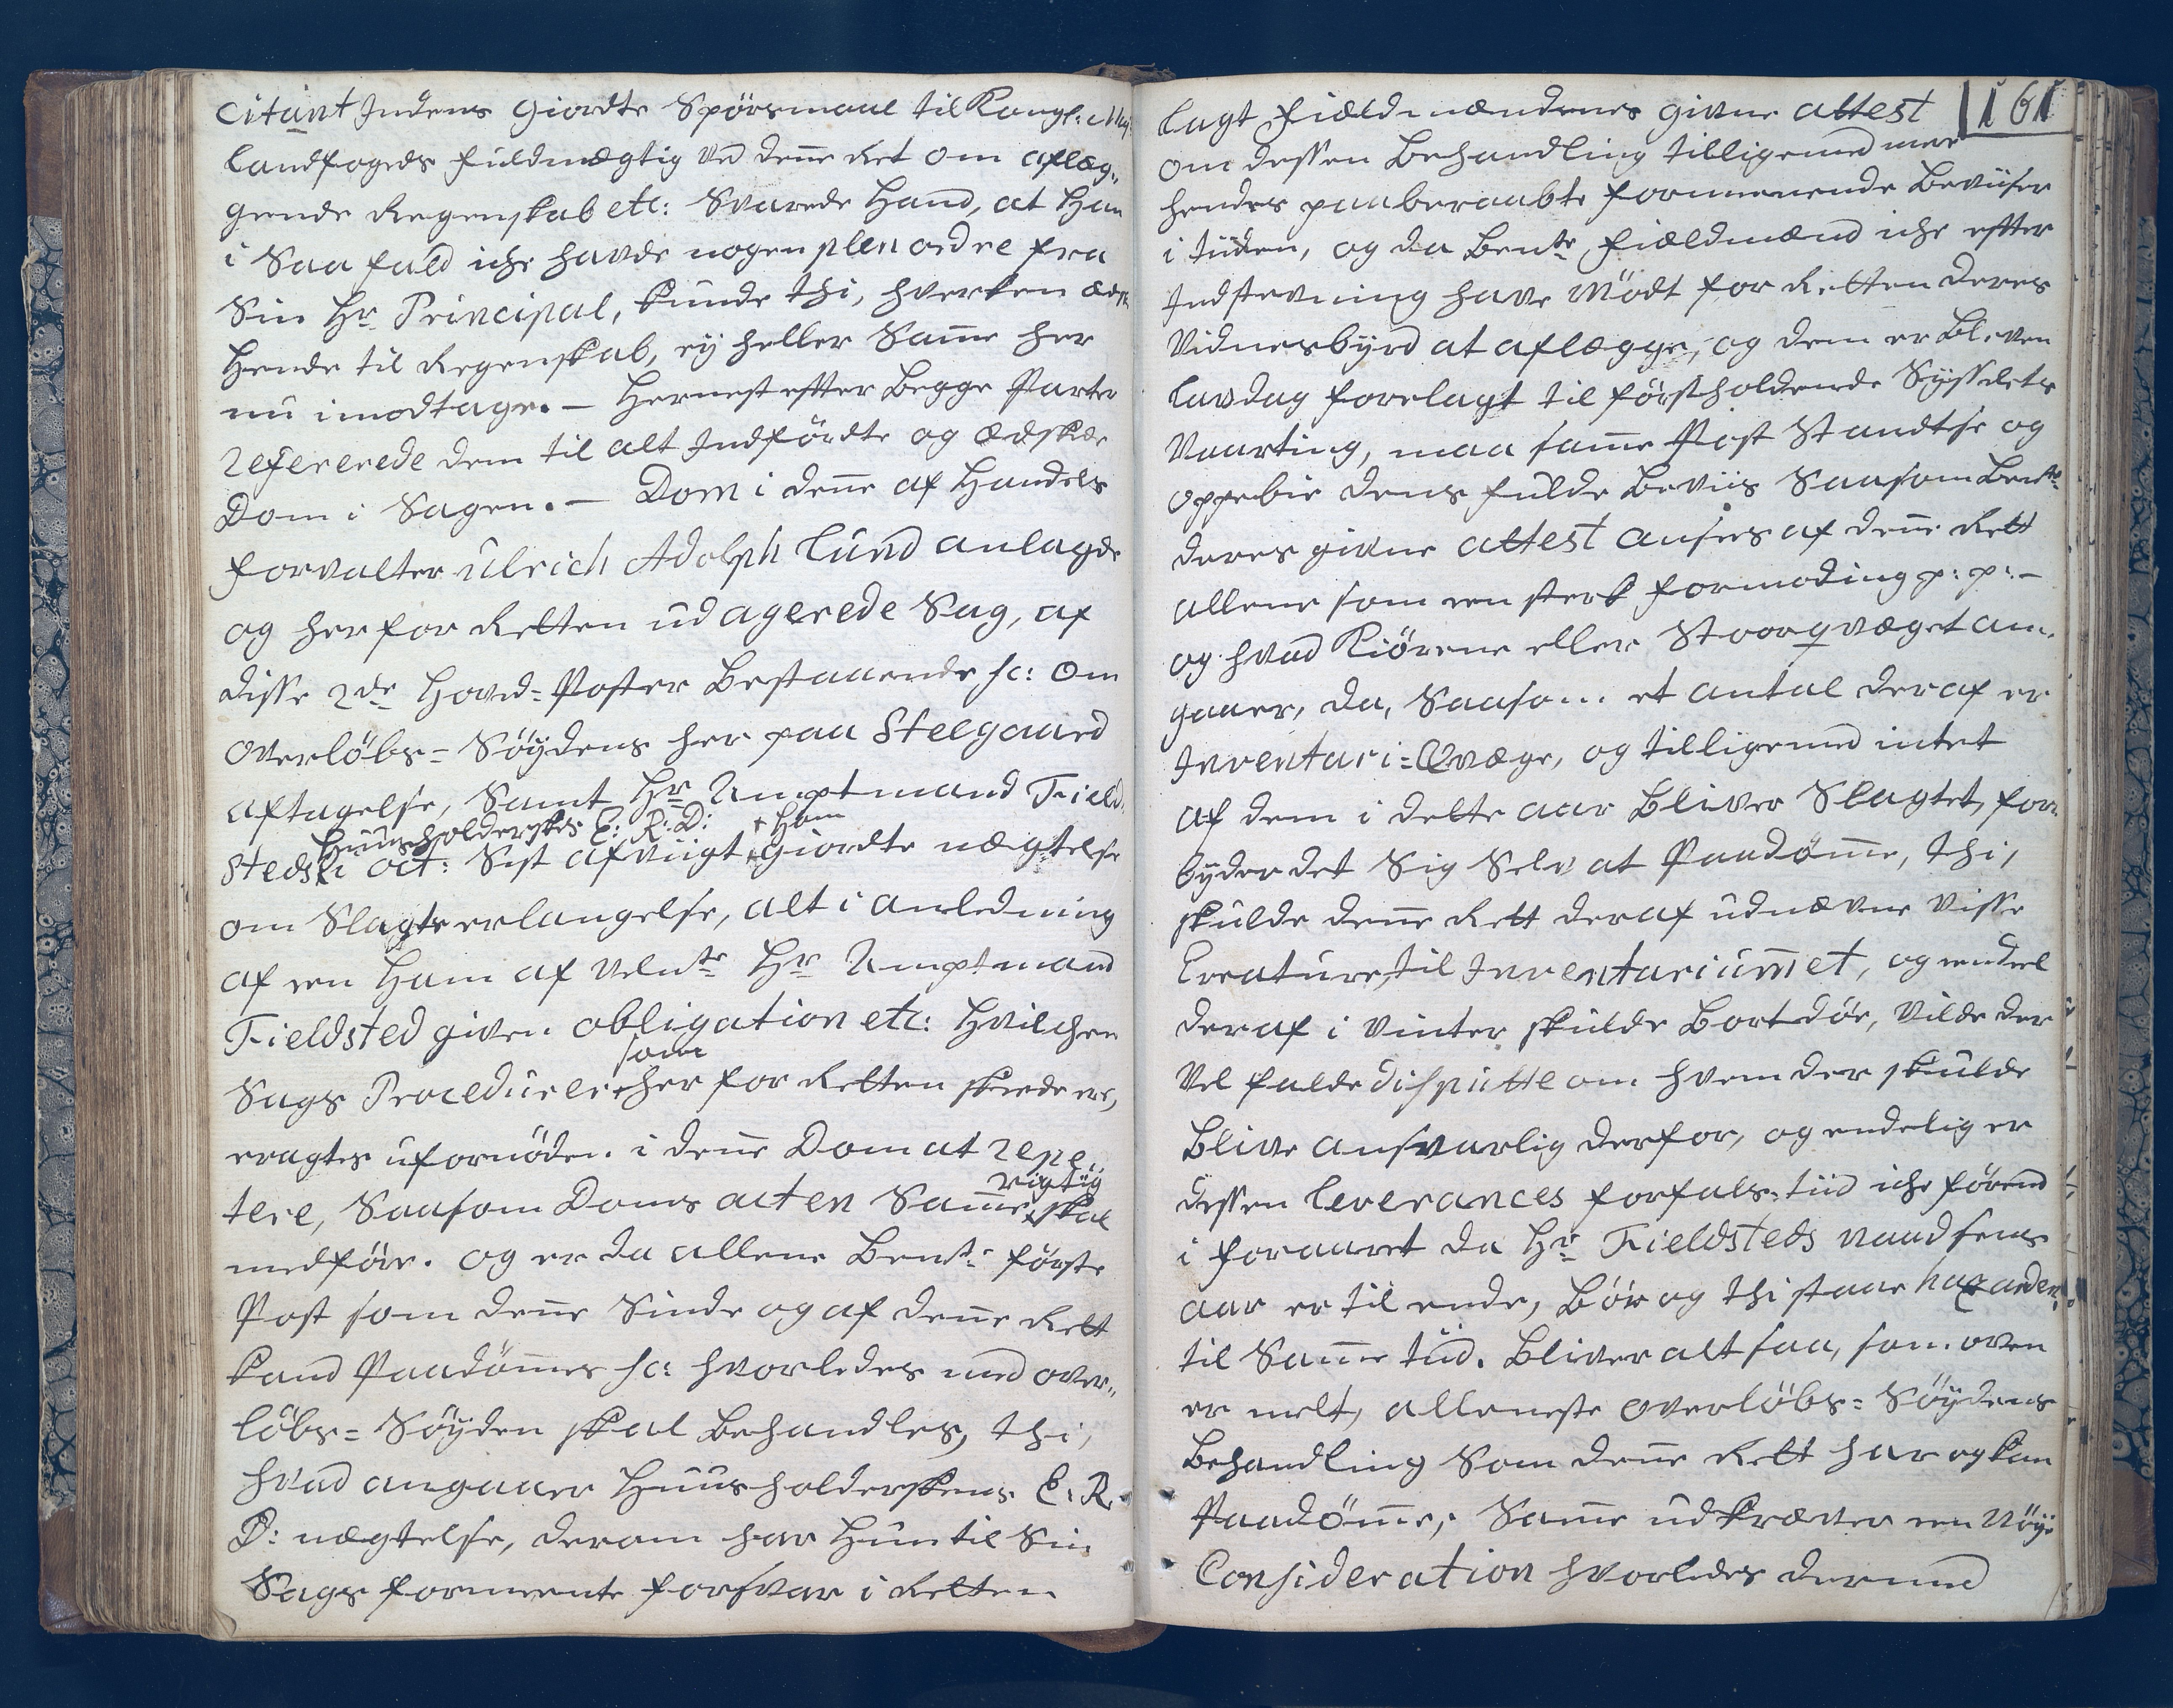 Citant Indens Giordte Spörsmaal til Kongl: May:
Landfogeds fuldmægtig ved denne Ret om aflæg„
gende Regenskab etc: Svarede Hand, at Han
i Saa fald iche havde nogen plen ordre fra
Sin Hr Principal, kunde thi, hverken æd
Hende til Regenskab, ej heller Samme her
nu imodtage. — Hernest efter Begge Parter
refererede dem til alt Indfördte og ædskede
Dom i Sagen. — Dom i denne af Handels
forvalter Ulrich Adolph Lund anlagde
og her for Retten udagerede Sag, af
disse 2de Hoved=Poster Bestaaende sc: Om
Overlöbs=Söydens her paa Steegaard
aftagelse, Samt Hr Amptmand Field„
Huusholderskes C: R: D: + Ham
steds i oct: Sist afviigt + Giordte nægtelse
om Slagts erlangelse, alt i anledning
af een Ham af velnte Hr Amptmand
Fieldsted given obligation etc: Hvilchen
som
Sags Procedurer + her for Retten skeede er,
eragtes ufornöden i denne Dom at repe„
rigtig
tere, Saasom Doms acten Samme + skal
medföre. og er da allene Bente förste
Post som denne Sinde og af denne Rett
kand Paadömmes sc: hvorledes med over„
löbs=Söyden skal Behandles, thi,
hvad angaaer Huusholderskens C: R:
D: nægtelse, derom har Hun til Sin
Sags formeente forsvar i Retten
161
lagt Fieldmændenes givne attest
om dessen Behandling tilligemed meer
hendes paaberaabte formenende Beviiser
i tiiden, og da Bente Fieldmænd iche efter
Indstevning have Mödt for Retten deres
Vidnesbyrd at aflægge, og dem er Bleven
Lavdag forelagt til först holdende Sysslets
Vaarting, maa samme Post Standtse og
oppebie dens fulde Beviis Saasom Bente
deres givne attest ansees af denne Rett
allene som een sterk formoding p: p: —
og hvad Kiörene eller Stoorqvæget an„
gaaer, da, Saasom et antal deraf er
Inventari=Qvæge, og tilligemed intet
af dem i dette aar Bliver Slagtet, for„
byder det Sig Selv at Paadömme, thi,
skulde denne Rett deraf udnævne visse
Creature, til Inventariummet, og endeel
deraf i Vinter skulde Bortdöe, vilde der
vel falde disputte om hvem der skulde
Blive ansvarlig derfor, og endelig er
dessen leverances forfals tiid iche förend
i foraaret da Hr Fieldsteds naadsens
aar er til ende, Bör og thi staae hazarden
til Samme tiid. Bliver alt saa, som oven
er melt, alleneste overlöbs=Söydens
Behandling Som denne Rett har og kan
Paadömme; Samme udkræver een Nöye
Consideration hvorledes dermed